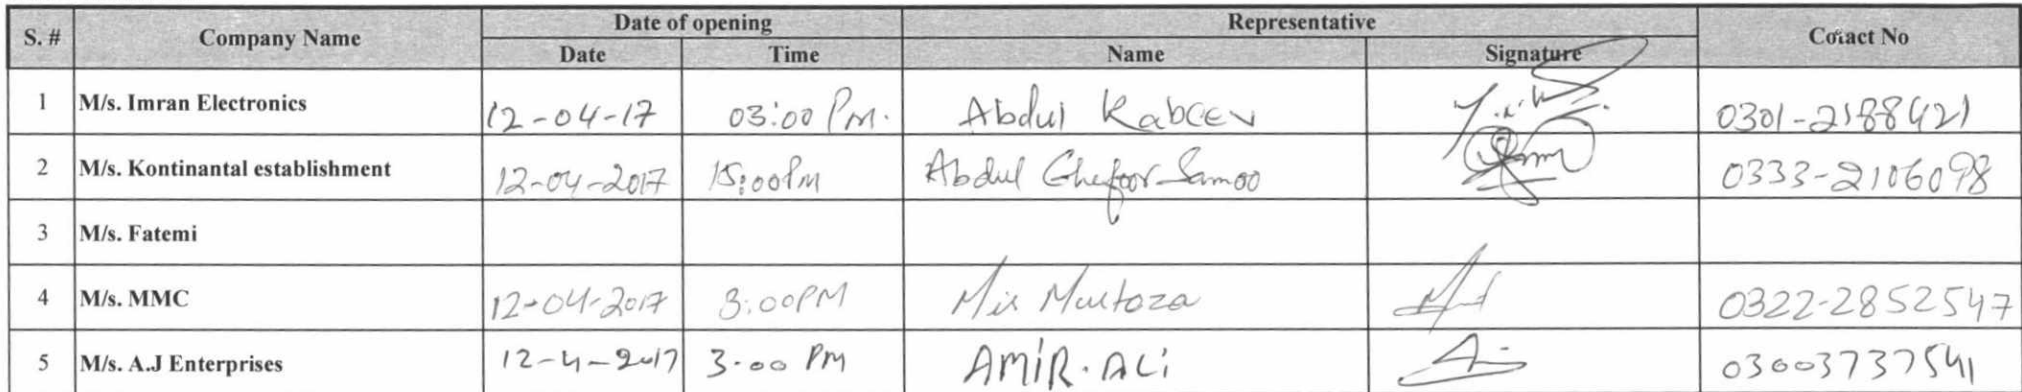 S. # Company Name Date of opening Representative Cotact No
Date Time Name Signature
1 M/s. Imran Electronics 12-04-17 03:00 Pm. Abdul Kabeer 0301-2188421
2 M/s. Kontinantal establishment 12-04-2017 15:00Pm Abdul Ghefoor Samoo 0333-2106098
3 M/s. Fatemi
4 M/s. MMC 12-04-2017 3:00PM Mir Murtoza 0322-2852547
5 M/s. A.J Enterprises 12-4-2017 3.00 PM AMIR.ALi 03003737541